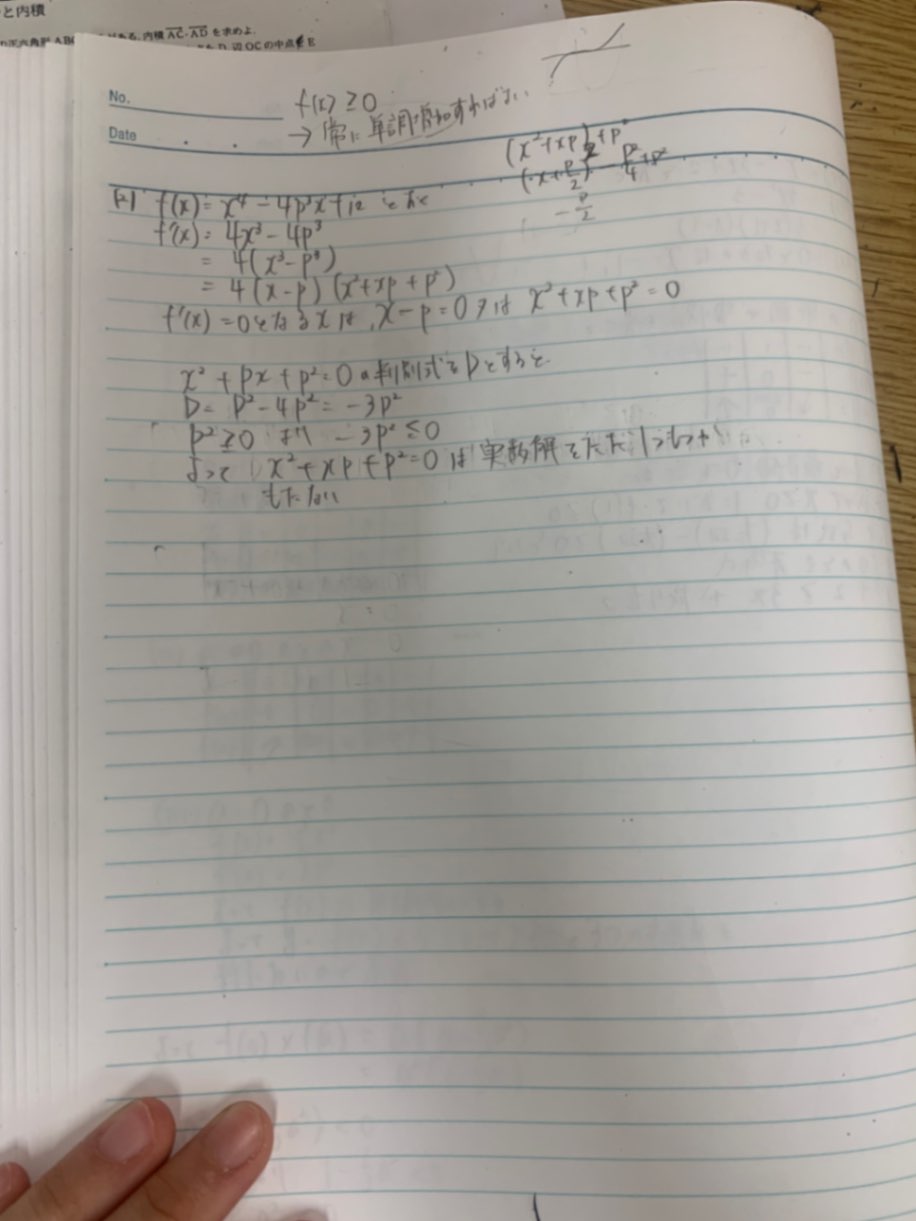 と内積
内積 AC・AD を求めよ.
辺 OC の中点を E
No.
f(x) ≧0
Date
→ 常に単調増加すればよい
(x²+xp)+p²
(x+p/2)² - p²/4 + p²
-p/2
(2) f(x)= x⁴ - 4p³x+12 とおく
f'(x)= 4x³ - 4p³
= 4(x³-p³)
= 4(x-p)(x²+xp+p²)
f'(x)=0となるxは, x-p=0 又は x²+xp+p²=0
x²+px+p²=0の判別式をDとすると
D= p²-4p²= -3p²
p²≧0 より -3p²≦0
よって x²+xp+p²=0 は 実数解をただ1つもつか
もたない